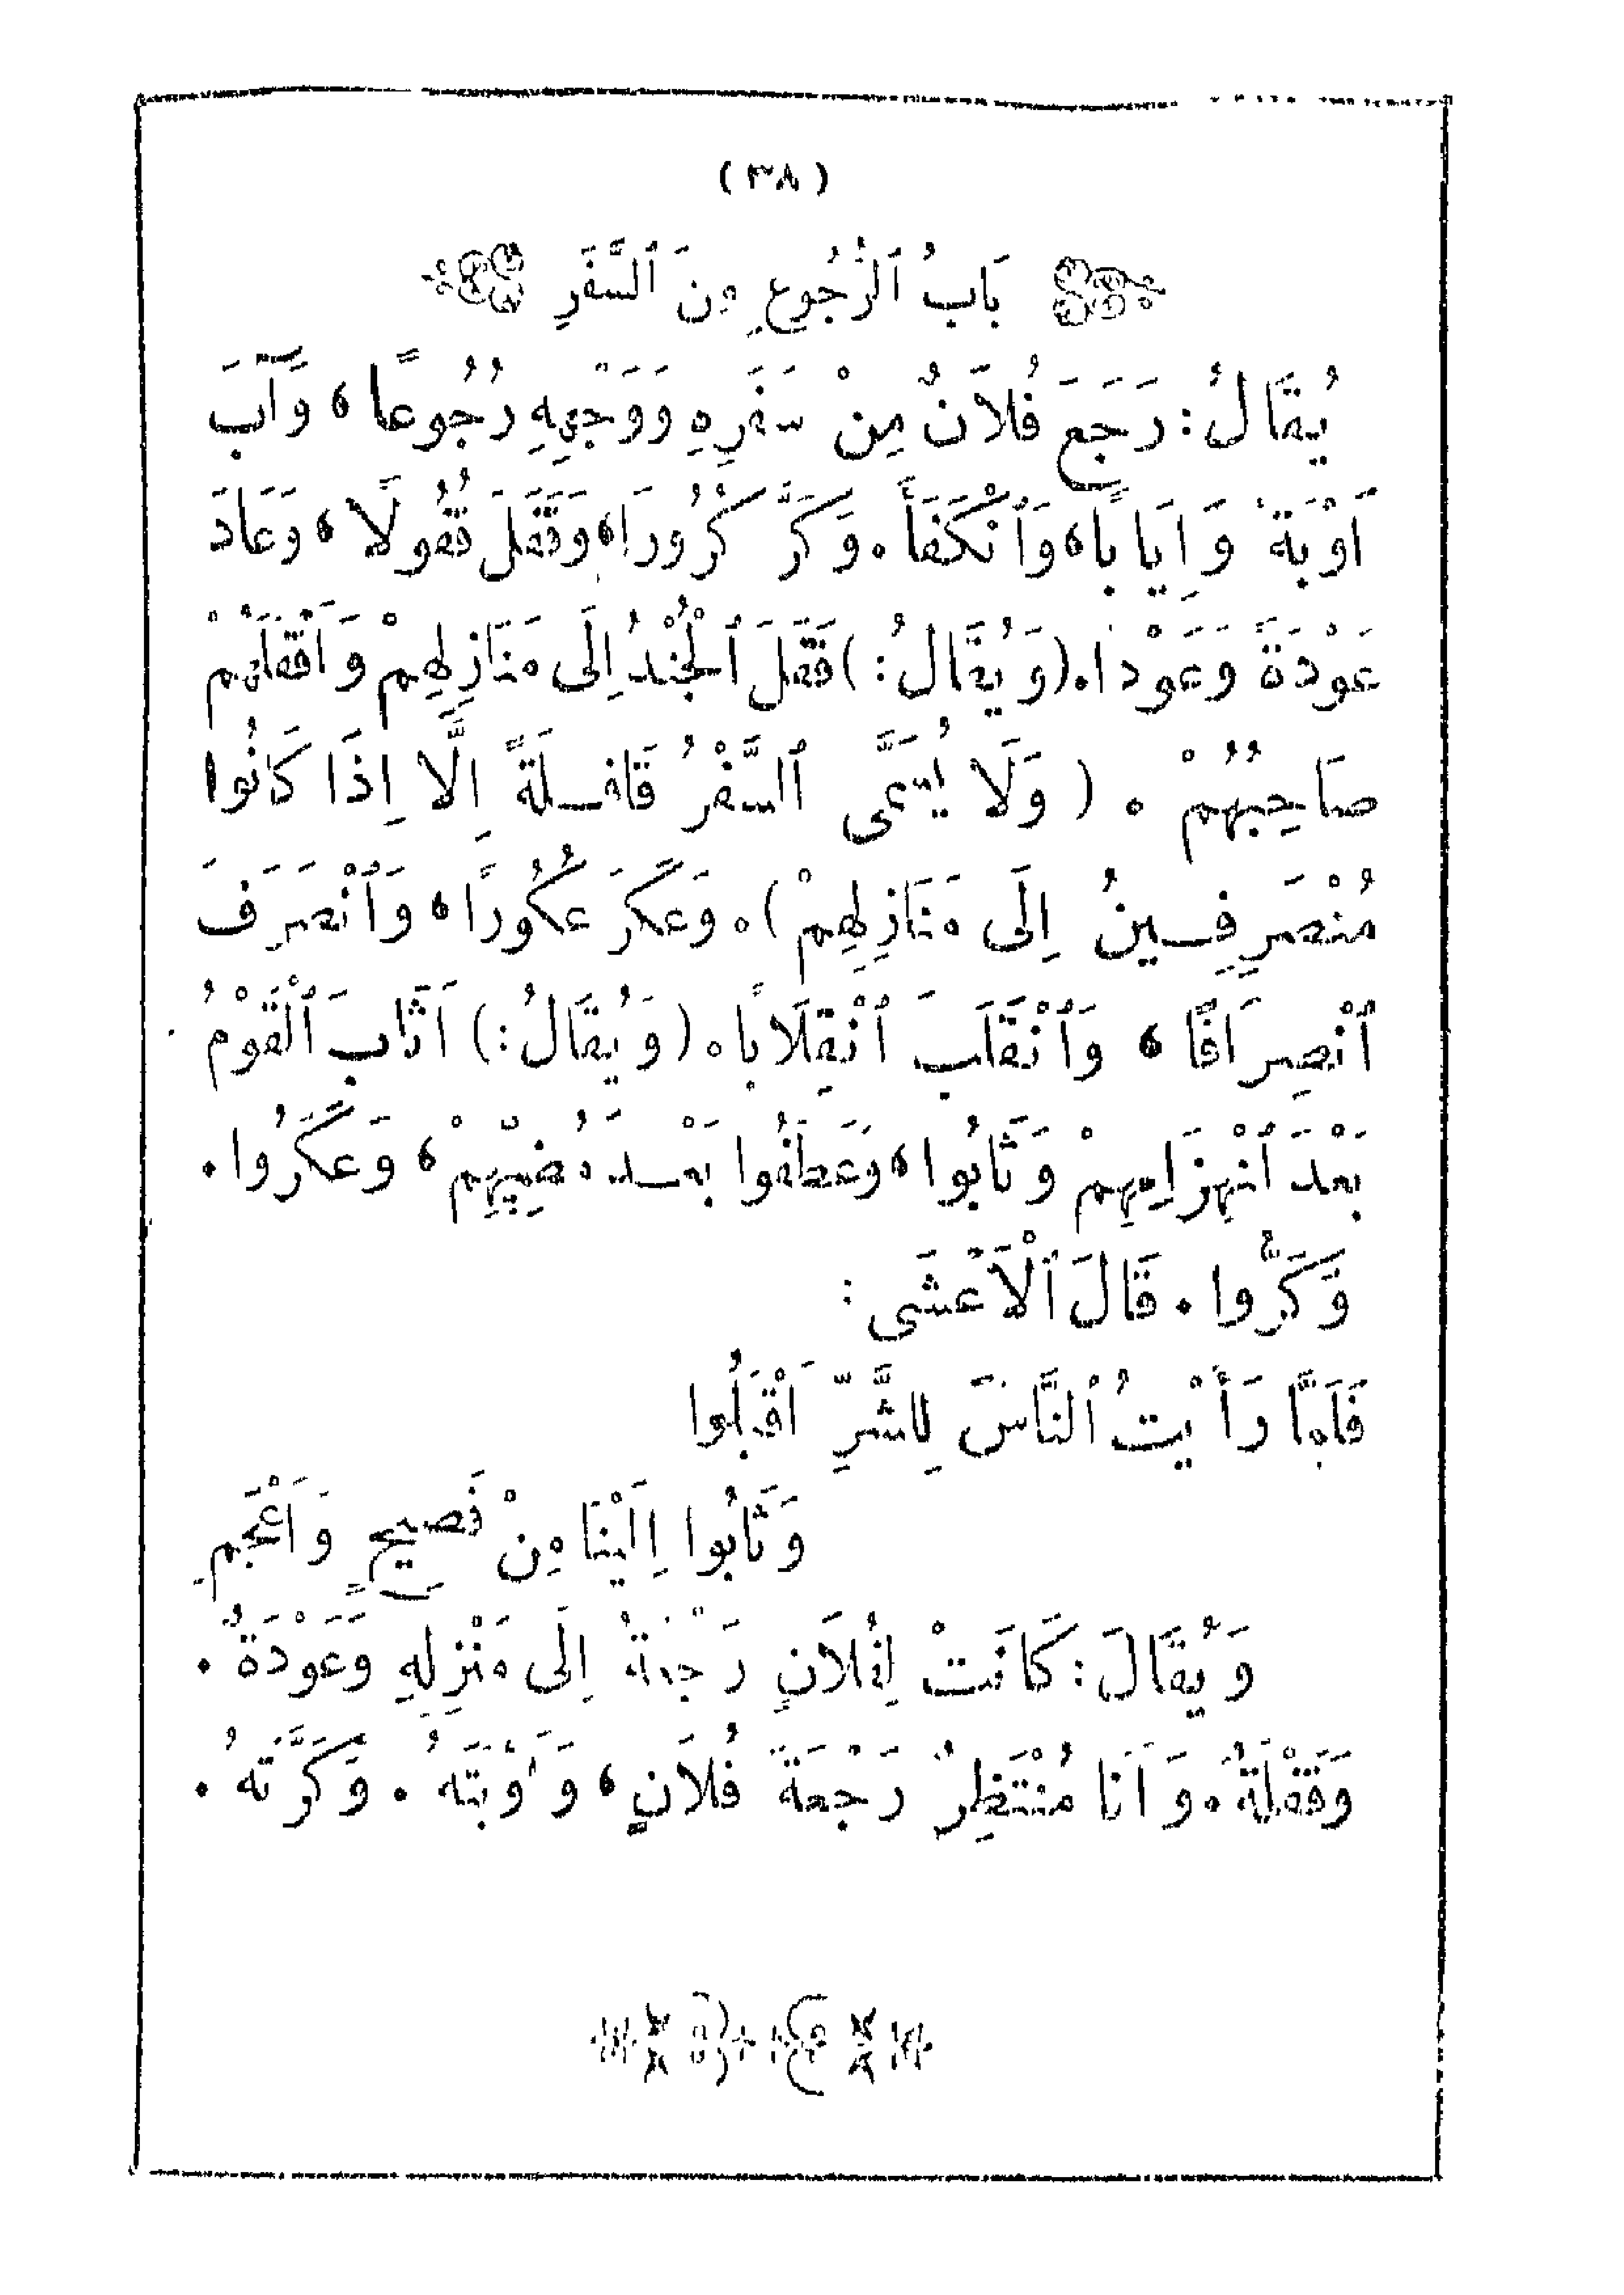 (٣٨)
بَابُ ٱلرُّجُوعِ مِنَ ٱلسَّفَرِ
يُقَالُ: رَجَعَ فُلَانٌ مِنْ سَفَرِهِ وَوَجْهِهِ رُجُوعًا، وَآبَ
أَوْبَةً وَإِيَابًا، وَٱنْكَفَأَ. وَكَرَّ كُرُورًا، وَقَفَلَ قُفُولًا، وَعَادَ
عَوْدَةً وَعَوْدًا. (وَيُقَالُ:) قَفَلَ ٱلْجُنْدُ إِلَى مَنَازِلِهِمْ وَأَقْفَلَهُمْ
صَاحِبُهُمْ. (وَلَا يُسَمَّى ٱلسَّفْرُ قَافِلَةً إِلَّا إِذَا كَانُوا
مُنْصَرِفِينَ إِلَى مَنَازِلِهِمْ). وَعَكَرَ عُكُورًا، وَٱنْصَرَفَ
ٱنْصِرَافًا، وَٱنْقَلَبَ ٱنْقِلَابًا. (وَيُقَالُ:) أَثَابَ ٱلْقَوْمُ
بَعْدَ ٱنْهِزَامِهِمْ وَثَابُوا، وَعَطَفُوا بَعْدَ مُضِيِّهِمْ، وَعَكَرُوا.
وَكَرُّوا. قَالَ ٱلْأَعْشَى:
فَلَمَّا رَأَيْتُ ٱلنَّاسَ لِلشَّرِّ أَقْبَلُوا
وَثَابُوا إِلَيْنَا مِنْ فَصِيحٍ وَأَعْجَمِ
وَيُقَالَ: كَانَتْ لِفُلَانٍ رَجْعَةٌ إِلَى مَنْزِلِهِ وَعَوْدَةٌ.
وَقَفْلَةٌ. وَأَنَا مُنْتَظِرٌ رَجْعَةَ فُلَانٍ، وَأَوْبَتَهُ. وَكَرَّتَهُ.